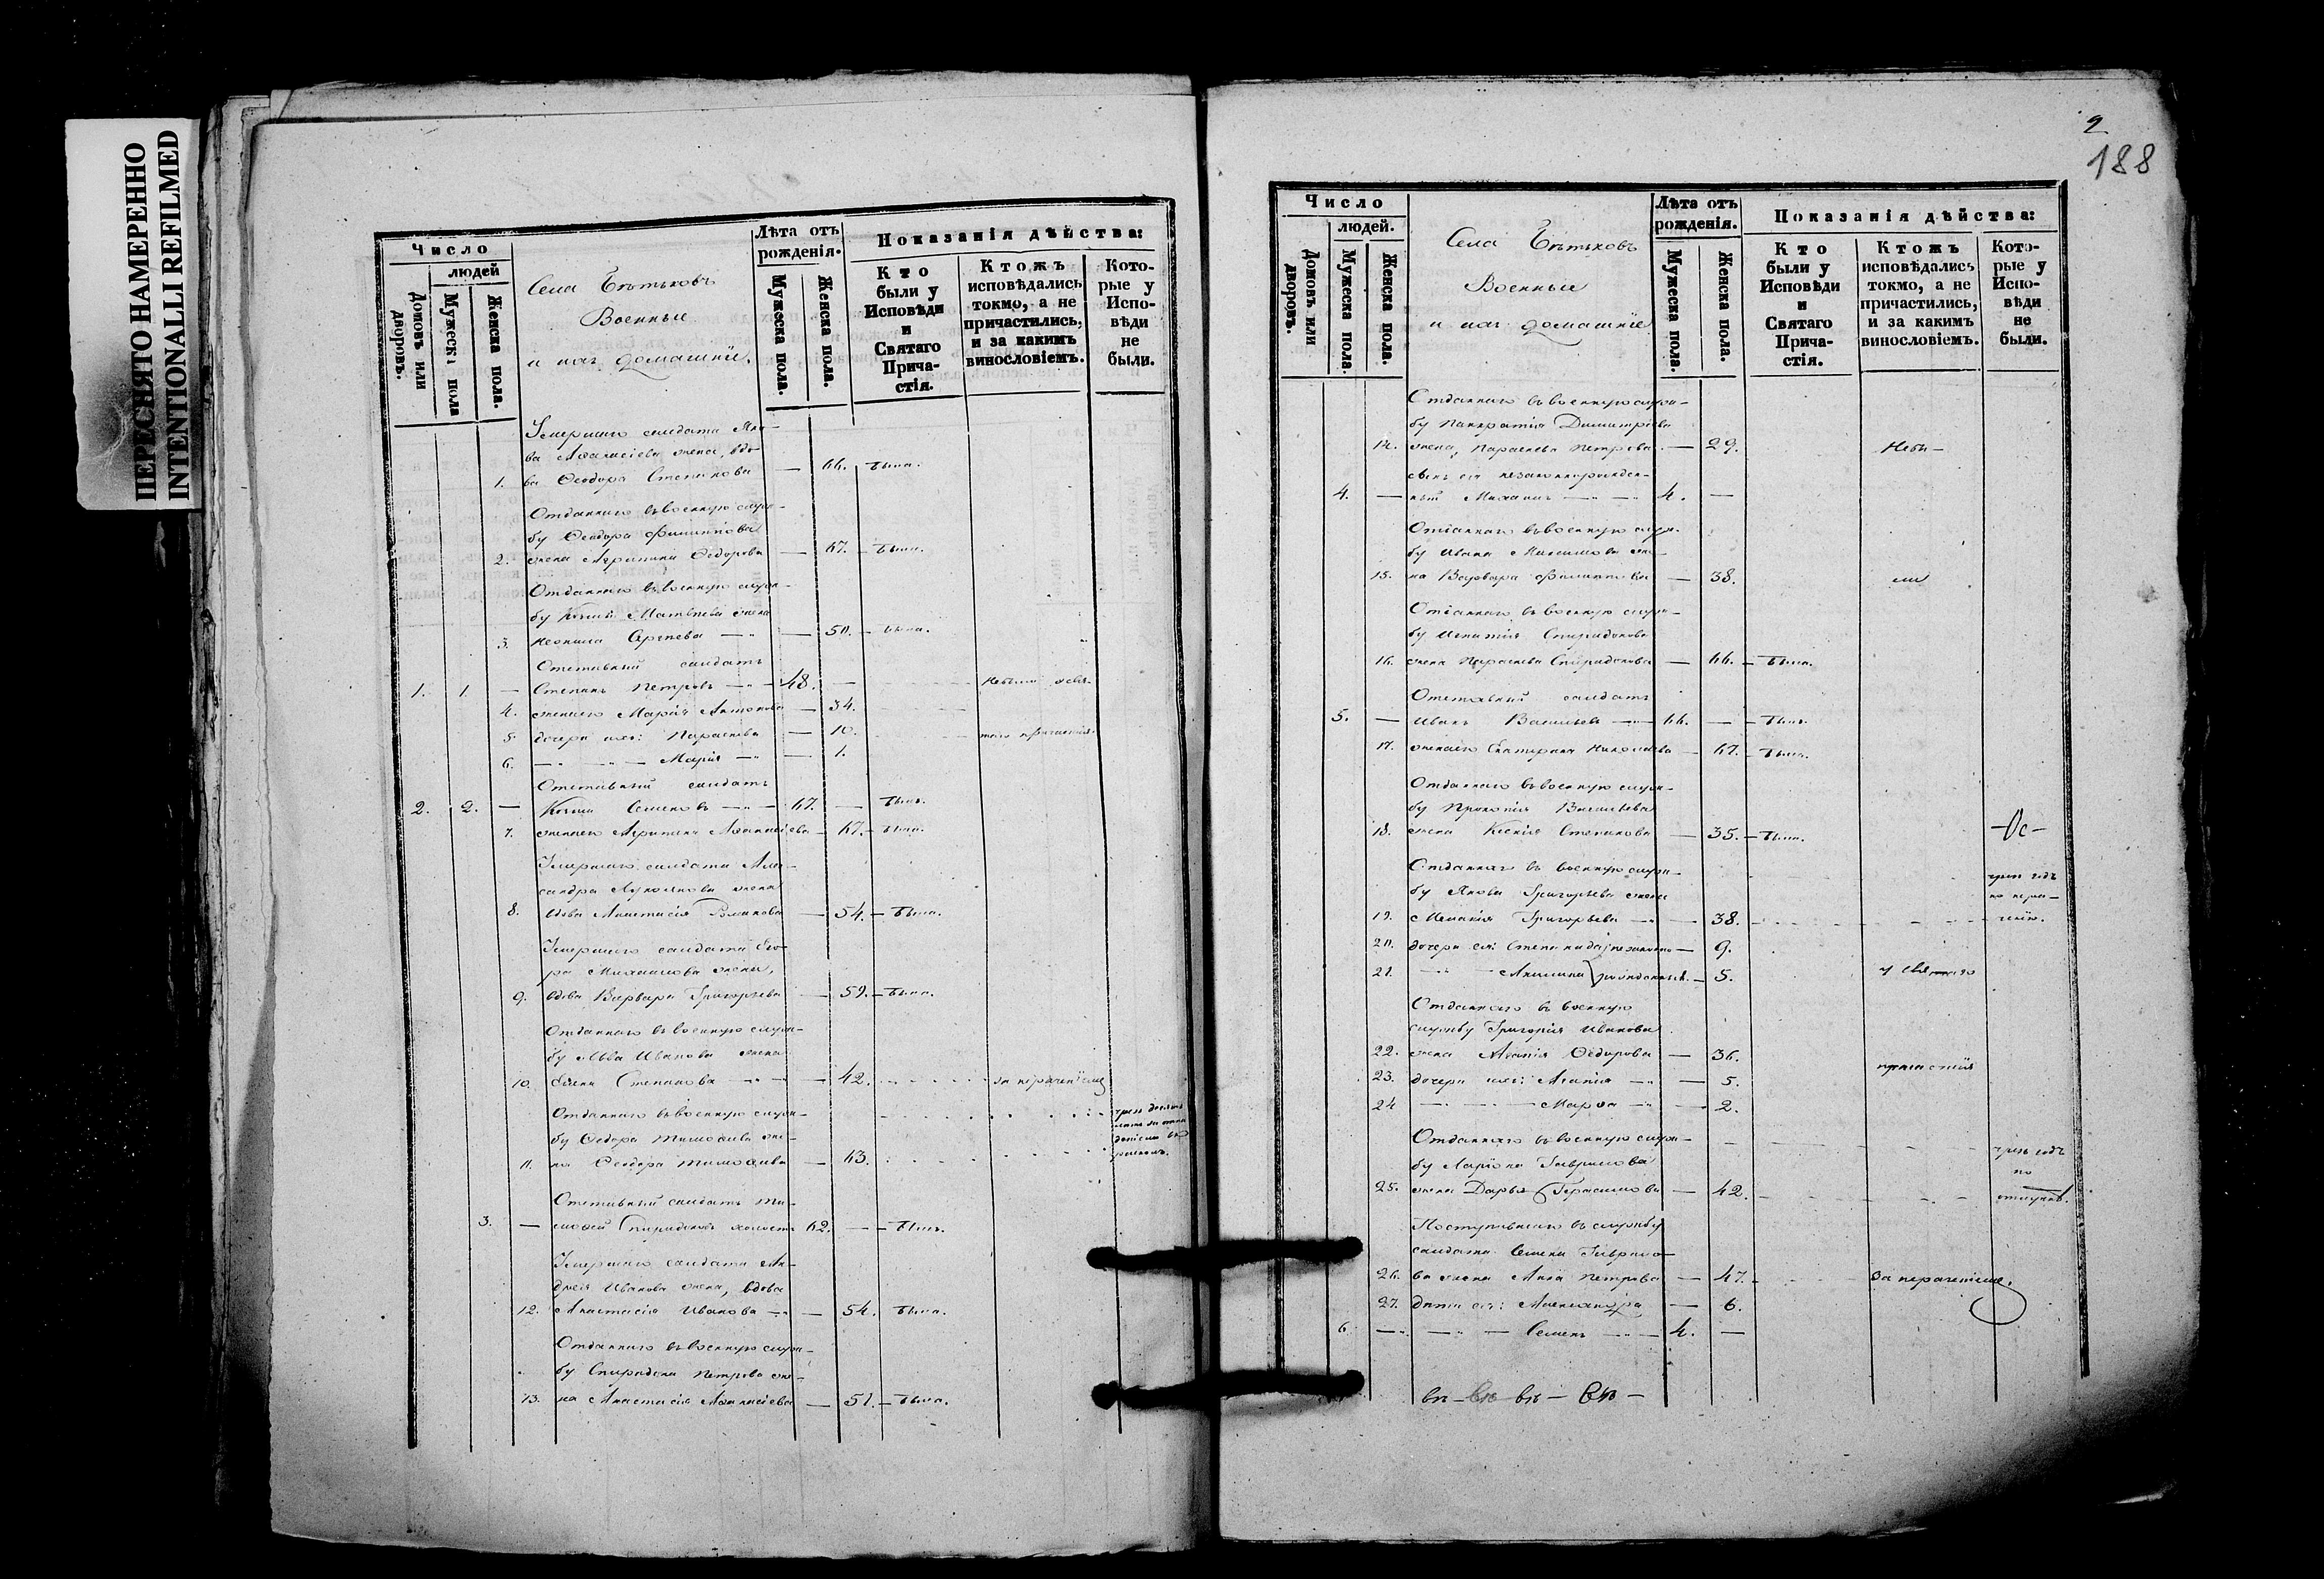 ПЕРЕСНЯТО НАМЕРЕННО
INTENTIONALLI REFILMED
Число
людей
Домовъ или дворовъ.
Мужеска пола
Женска пола.
Села
Военные
и ихъ домашніе.
Лѣта отъ рожденія.
Мужеска пола.
Женска пола.
Показанія дѣйства:
Кто были у Исповѣди и Святаго Причастія.
Ктожъ исповѣдались токмо, а не причастились, и за какимъ винословіемъ.
Которые у Исповѣди не были.
Умершаго солдата Яко-
ва Аѳанасіева жена, вдо-
1. ва Ѳеодора Степанова — 66. — была.
Отданнаго въ военную служ-
бу Ѳеодора Филиппова
2. жена Агрипина Ѳедорова — 67. — была.
Отданнаго въ военную служ-
бу Козмы Матвѣева жена
3. Неонила Сергѣева — 50. — была.
Отставный солдатъ
1. 1. — Степанъ Петровъ — 48. —
4. жена его Марія Антонова — 34.
5. дочери ихъ: Параскева — 10.
6. — Марія — 1.
Отставный солдатъ
2. 2. — Козма Семеновъ — 67. — былъ.
7. жена его Агрипина Аѳанасіева — 67. — была.
Умершаго солдата Алек-
сандра Лукоянова жена
8. вдова Анастасія Романова — 54. — была.
Умершаго солдата Его-
ра Михайлова жена,
9. вдова Варвара Григорьева — 59. — была.
Отданнаго въ военную служ-
бу Льва Иванова жена
10. Елена Степанова — 42. за нерачен
Отданнаго въ военную служ-
бу Ѳедора Тимоѳеева же-
11. на Ѳеодора Тимоѳеева — 63.
Отставный солдатъ Ти-
3. — моѳей Спиридоновъ холостъ 62. — былъ.
Умершаго солдата Ан-
дрея Иванова жена, вдова
12. Анастасія Иванова — 54. была.
Отданнаго въ военную служ-
бу Спиридона Петрова же-
13. на Анастасія Аѳанасіева — 51. — была.
2
188
Число
людей.
Домовъ или дворовъ.
Мужеска пола.
Женска пола.
Села
Военные
и ихъ домашніе
Лѣта отъ рожденія.
Мужеска пола.
Женска пола.
Показанія дѣйства:
Кто были у Исповѣди и Святаго Причастія.
Ктожъ исповѣдались токмо, а не причастились, и за какимъ винословіемъ.
Которые у Исповѣди не были.
Отданнаго въ военную служ-
бу Панкратія Димитріева
14. жена, Параскева Петрова — 29. Небы-
сынъ ея незаконнорожден-
4. — ный Михаилъ — 4. —
Отданнаго въ военную служ-
бу Ивана Максимова же-
15. на Варвара Филиппова — 38. ли
Отданнаго въ военную служ-
бу Игнатія Спиридонова
16. жена Параскева Спиридонова — 66. — была.
Отставный солдатъ
5. — Иванъ Васильевъ — 66. — былъ.
17. жена его Екатерина Николаева — 67. — была.
Отданнаго въ военную служ-
бу Прокопія Васильева
18. жена Ксенія Степанова — 35. — была. —Ос—
Отданнаго въ военную служ-
бу Якова Григорьева жена
19. Меланія Григорьева — 38.
чрез годъ
по нера-
ченію.
20. дочери ея: Степанида незаконно- — 9.
21. — Акилина рожденныя. — 5. у Святаго
Отданнаго въ военную
службу Григорія Иванова
22. жена Агапія Ѳедорова — 36.
23. дочери ихъ: Агапія — 5. причастія
24 — Марѳа — 2.
Отданнаго въ военную служ-
бу Ларіона Гаврилова
25. жена Дарья Герасимова — 42.
чрезъ годъ
по
отлучкѣ.
Поступившаго въ службу
солдата Семена Гаврило-
26. ва жена Анна Петрова — 47. за нераченіемъ.
27. дѣти ея: Александра — 6.
6 — Семенъ — 4. —